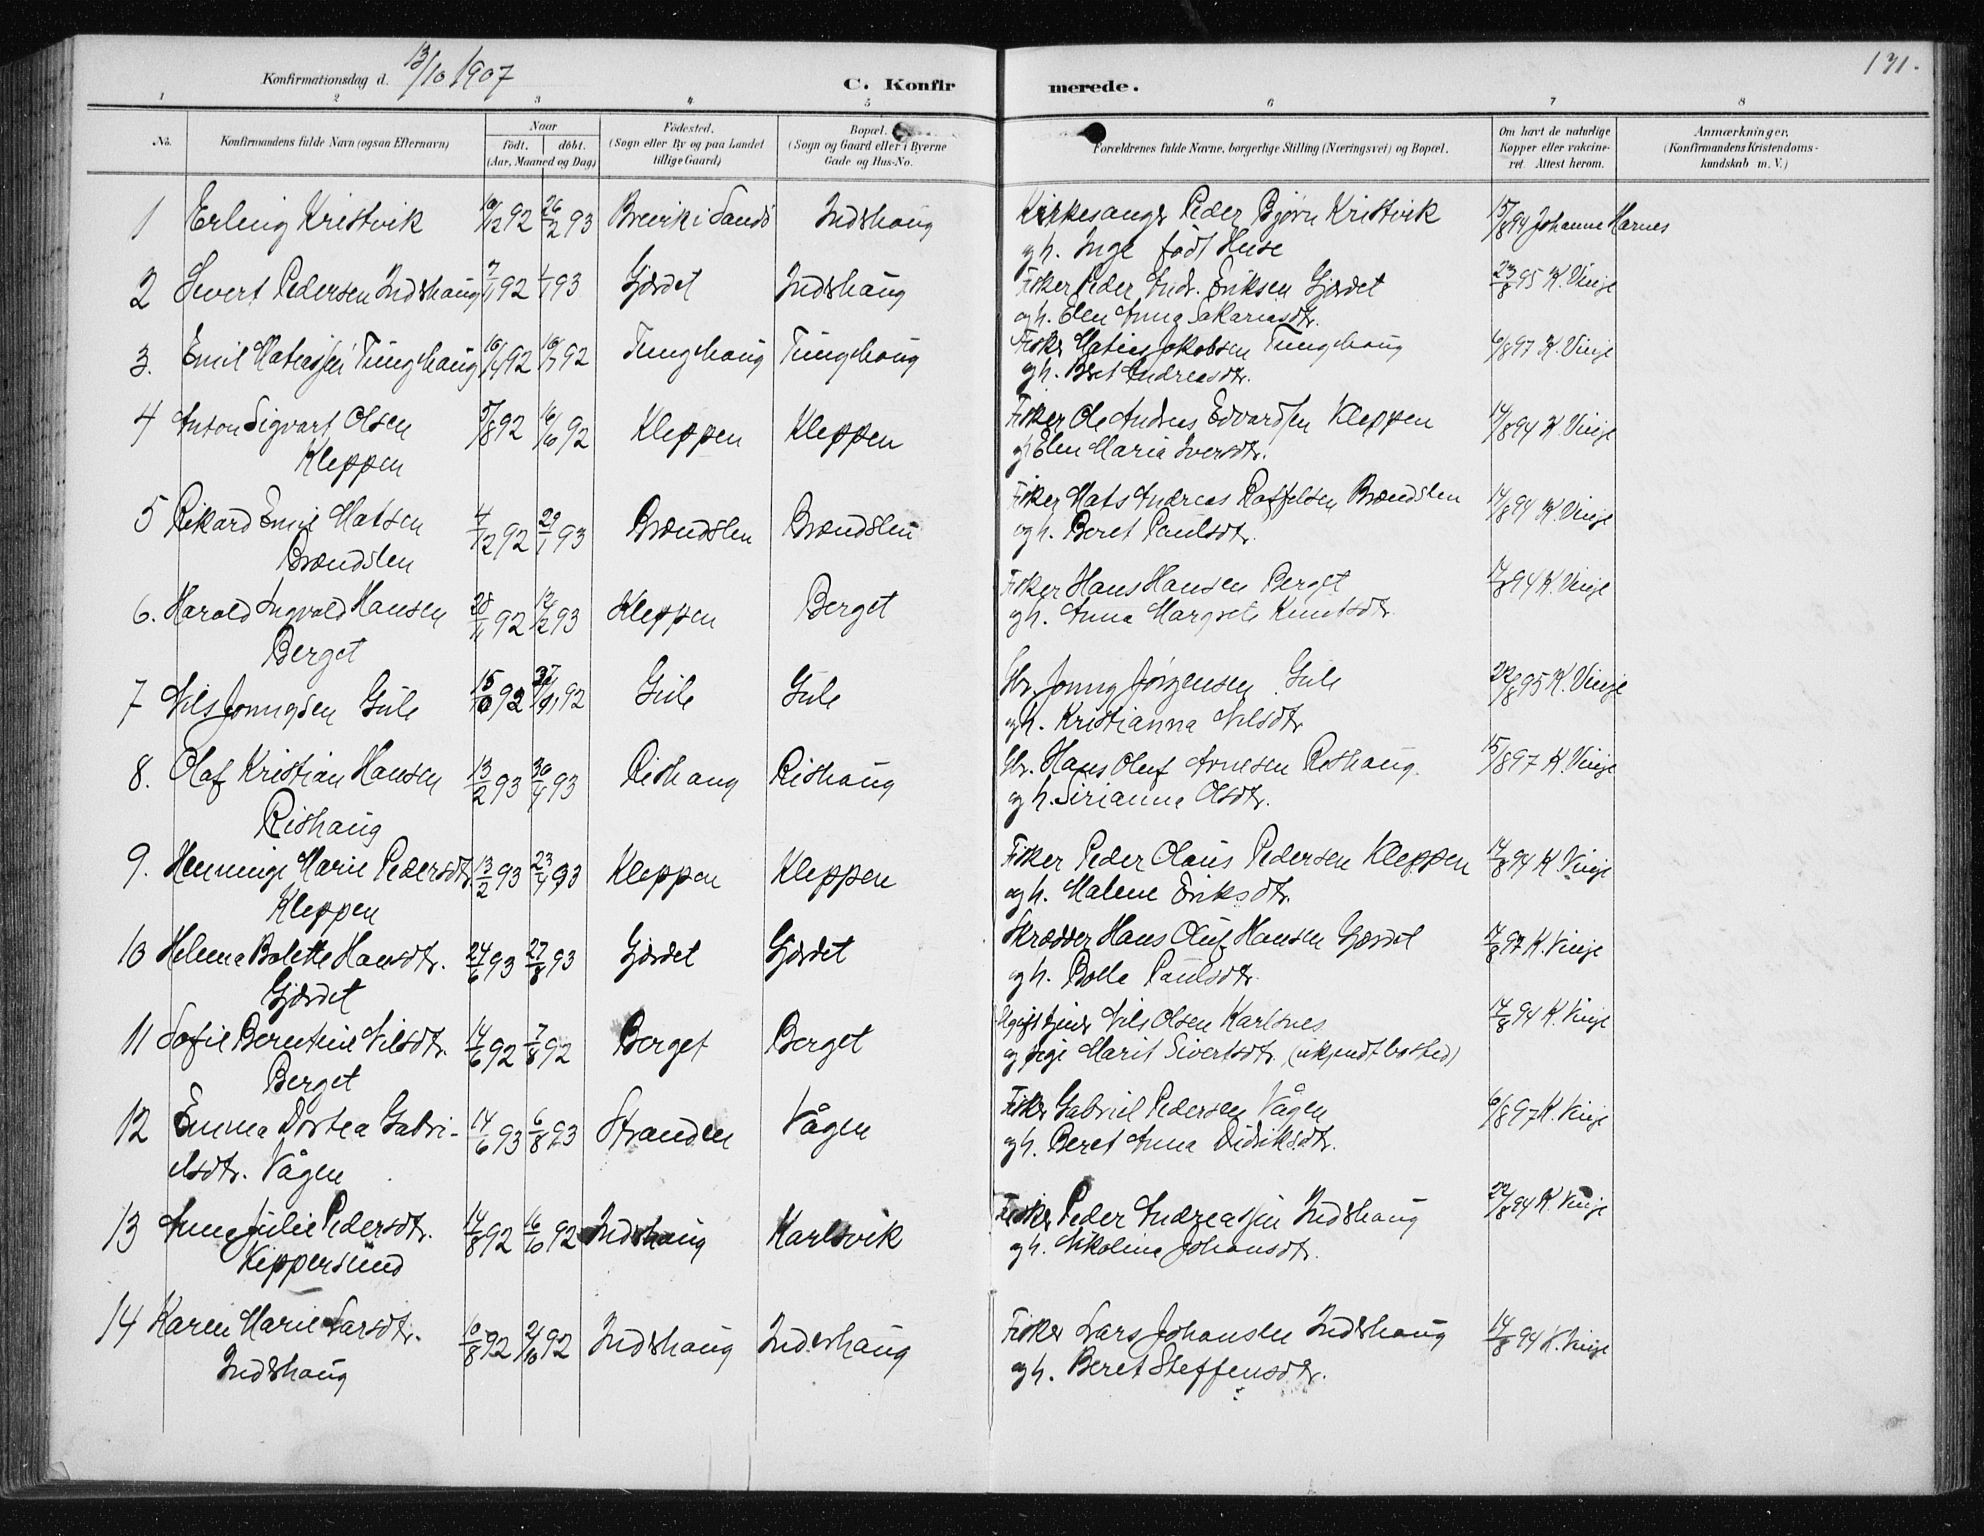 Konfirmationsdag d. 13/10 1907
C. Konfir merede.
131.
1 2 3 4 5 6 7 8
No. Konfirmandens fulde Navn (ogsaa Efternavn) Naar født. døbt. (Aar, Maaned og Dag) Fødested. (Sogn eller By og paa Landet tillige Gaard) Bopæl. (Sogn og Gaard eller i Byerne Gade og Hus-No. Forældrenes fulde Navne, borgerlige Stilling (Næringsvei) og Bopæl. Om havt de naturlige Kopper eller vakcineret. Attest herom. Anmærkninger. (Konfirmandens Kristendomskundskab m. V.)
1 Erling Kristvik 10/12 92 26/2 93 Brevik i Sandö Indshaug Kirkesanger Peder Bjørn Kristvik 15/8 94 Johanne Harnes
og h. Inge født Heise
2 Sivert Pedersen Indshaug 7/11 92 1/1 93 Gjærdet Indshaug Fisker Peder Andr. Eriksen Gjærdet 23/8 95 K. Vinje
og h. Elen Anna Sakariasdtr.
3. Emil Matiassen Tunghaug 10/4 92 10/7 92 Tunghaug Tunghaug Fisker Matias Jakobsen Tunghaug 6/8 97 K. Vinje
og h. Beret Andreasdtr.
4 Anton Sigvart Olsen 5/8 92 16/10 92 Kleppen Kleppen Fisker Ole Andreas Edvardsen Kleppen 14/8 94 K. Vinje
Kleppen og h. Elen Maria Iversdtr.
5 Rikard Emil Matsen 4/12 92 29/1 93 Brændslen Brændslen Fisker Mats Andreas Roffelsen Brændslen 14/8 94 K. Vinje
Brændslen og h. Beret Paulsdtr.
6. Harald Ingvald Hansen 28/11 92 12/2 93 Kleppen Berget Fisker Hans Hansen Berget 14/8 94 K. Vinje
Berget og h. Anna Margrete Knutsdtr.
7 Nils Jonnysen Gule 92 92 Gule Gule Gbr. Jonny Jørgensen Gule 22/8 95 K. Vinje
og h. Kristianna Nilsdtr
8. Olaf Kristian Hansen 13/2 93 30/4 93 Rishaug Rishaug Gbr. Hans Oluf Arnesen Rishaug. 15/8 97 K. Vinje
Rishaug og h. Sirianna Olsdtr.
9. Henninge Marie Pedersdtr. 13/2 93 23/4 93 Kleppen Kleppen Fisker Peder Olaus Pedersen Kleppen 14/8 94 K. Vinje
Kleppen og h. Malene Eriksdtr.
10 Helena Bolette Hansdtr. 24/6 93 27/8 93 Gjærdet Gjærdet Skrædder Hans Oluf Hansen Gjærdet 14/8 97 K. Vinje
Gjærdet og h. Bolle Paulsdtr.
11 Sofie Berntine Nilsdtr. 14/6 92 7/8 92 Berget Berget Ugift tjener Nils Olsen Karlsnes 14/8 94 K. Vinje
Berget og pige Marit Sivertsdtr. (ukjendt bosted)
12 Emma Dortea Gabri- 14/6 93 6/8 93 Stranden Vågen Fisker Gabriel Pedersen Vågen 6/8 97 K. Vinje
elsdtr. Vågen og h. Beret Anna Didriksdtr.
13 Anne Julie Pedersdtr. 14/8 92 16/10 92 Indshaug Karlsvik Fisker Peder Andreassen Indshaug 22/8 94 K. Vinje
Kippersund og h. Nikoline Johansdtr.
14 Karen Marie Larsdtr. 6/8 92 2/10 92 Indshaug Indshaug Fisker Lars Johansen Indshaug 14/8 94 K. Vinje
Indshaug og h. Beret Steffensdtr.